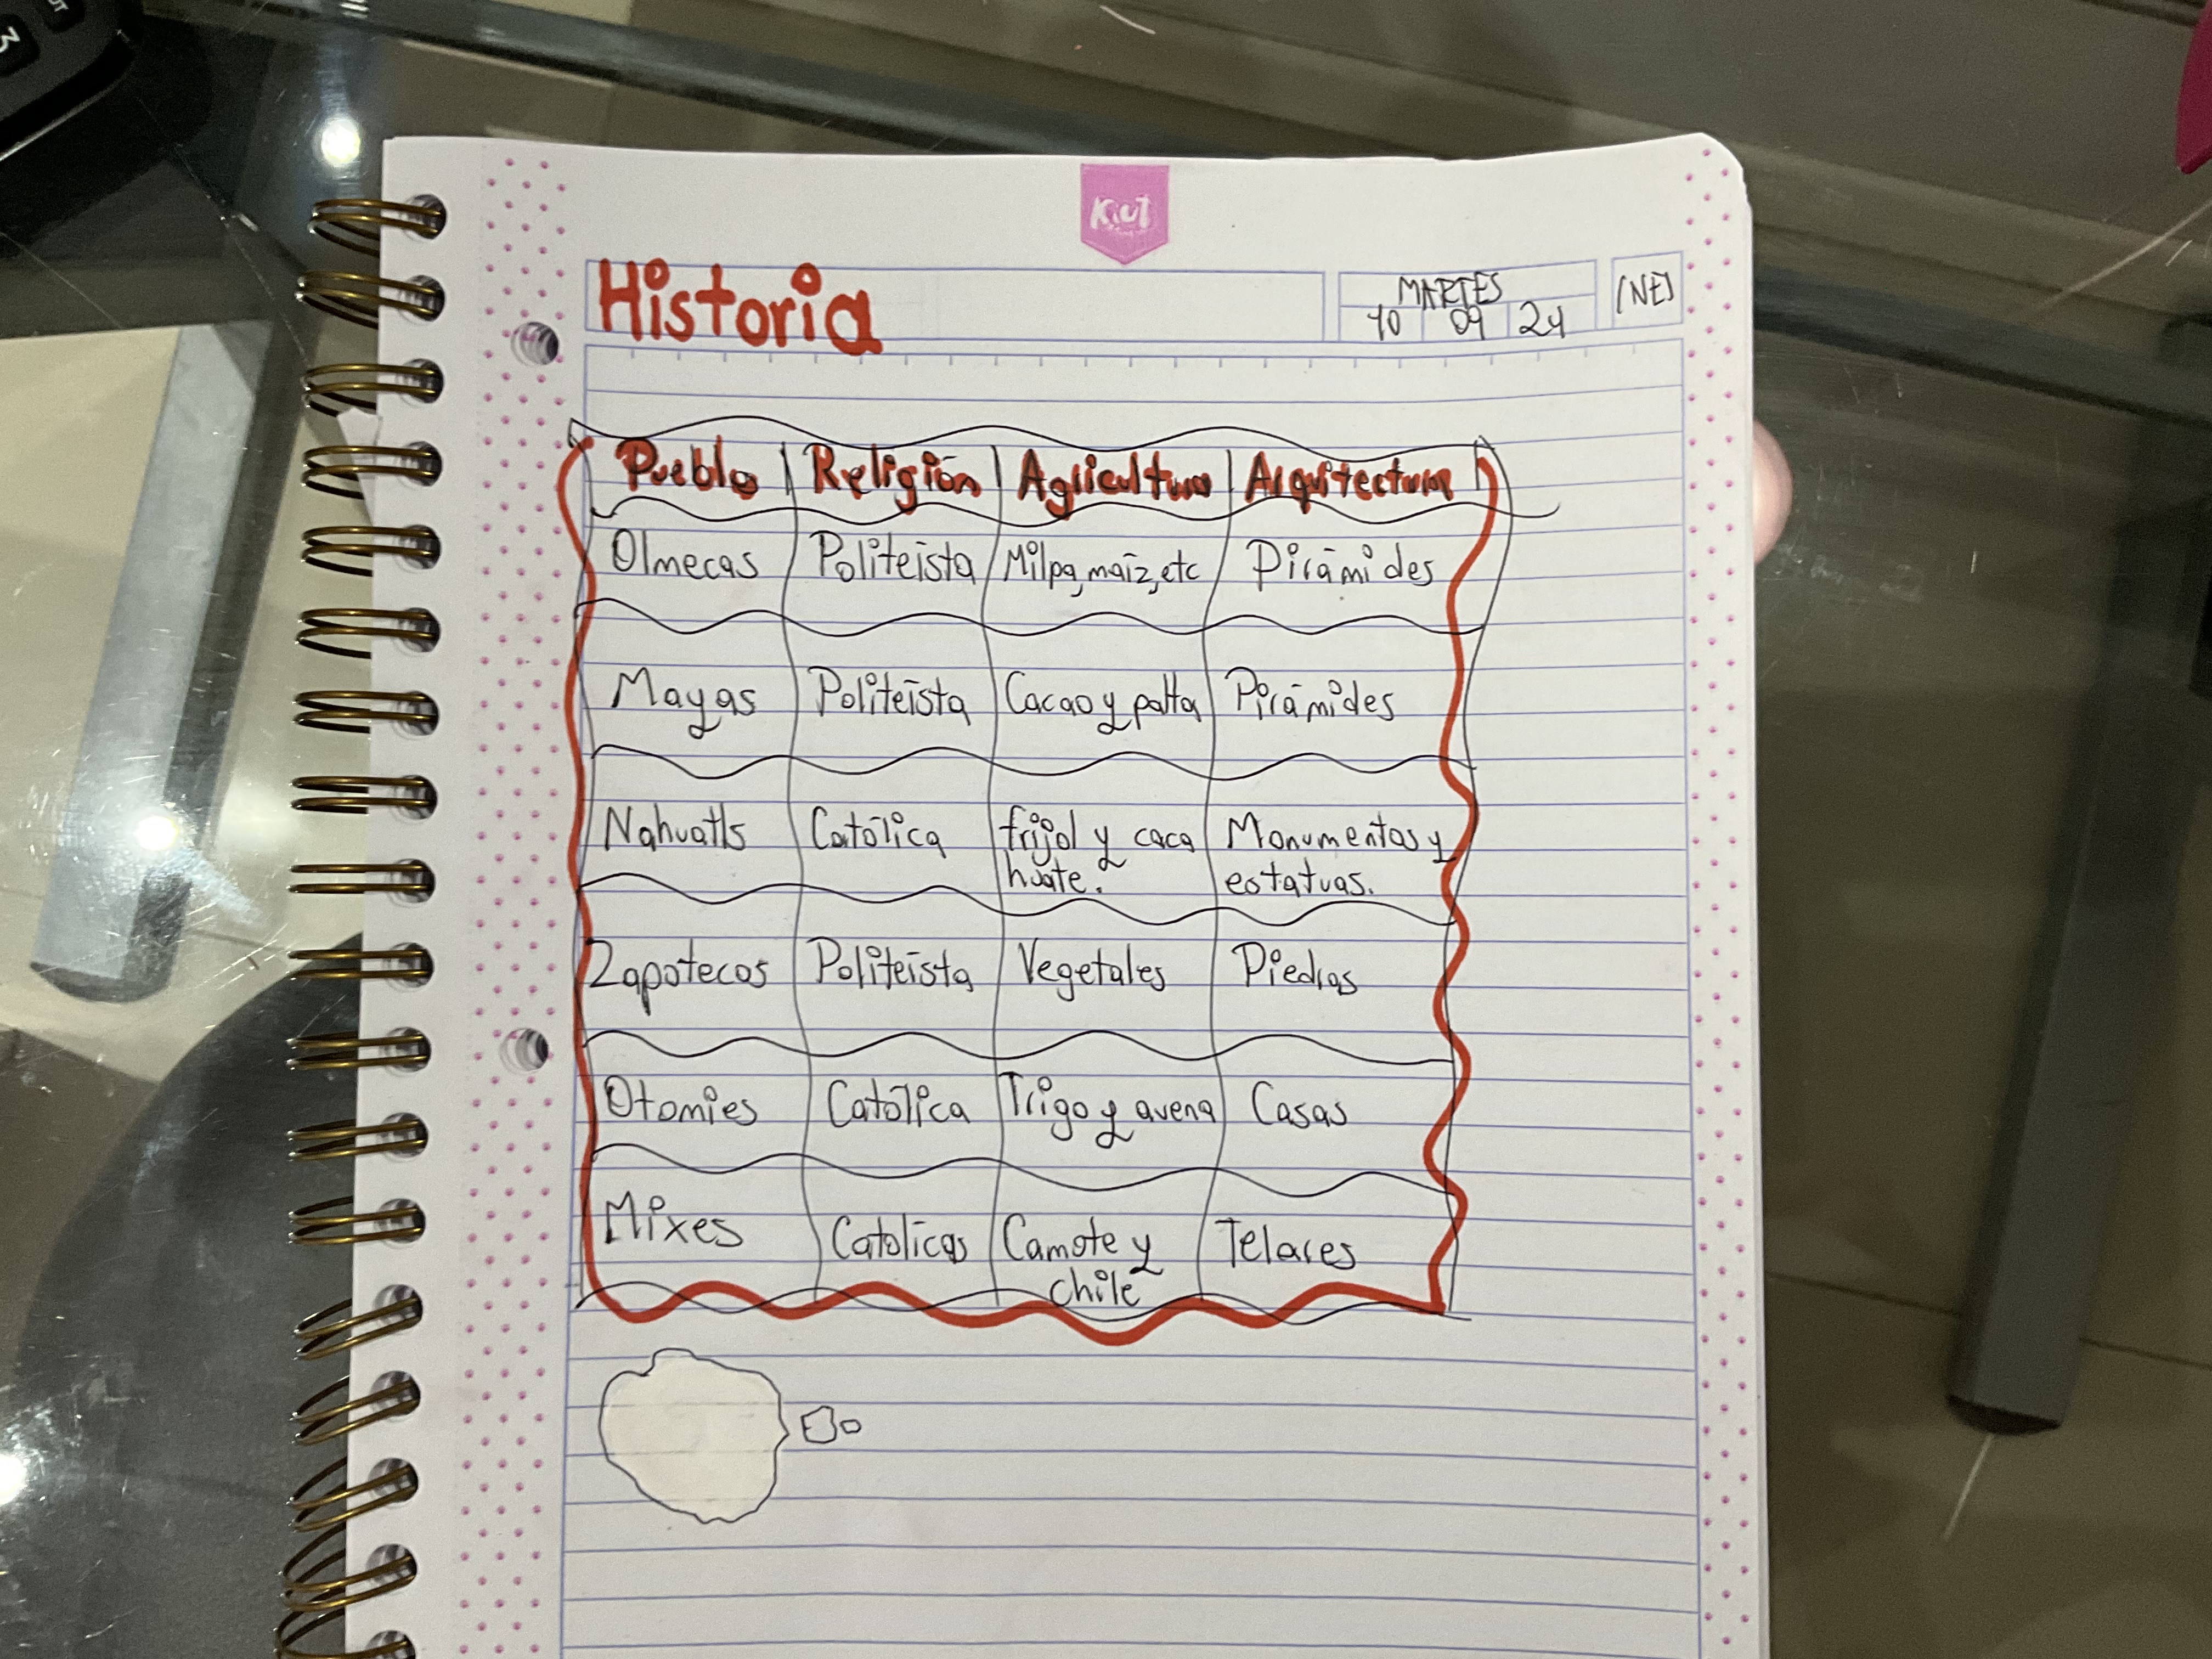 Kiut
Historia
MARTES
10 09 24
Pueblo Religión Agricultura Arquitectura
Olmecas Politeísta Milpa, maíz, etc Pirámides
Mayas Politeísta Cacao y palta Pirámides
Nahuatls Católica frijol y caca Monumentos y
huate. estatuas.
Zapotecos Politeísta Vegetales Piedras
Otomies Católica Trigo y avena Casas
Mixes Catolicas Camote y Telares
chile